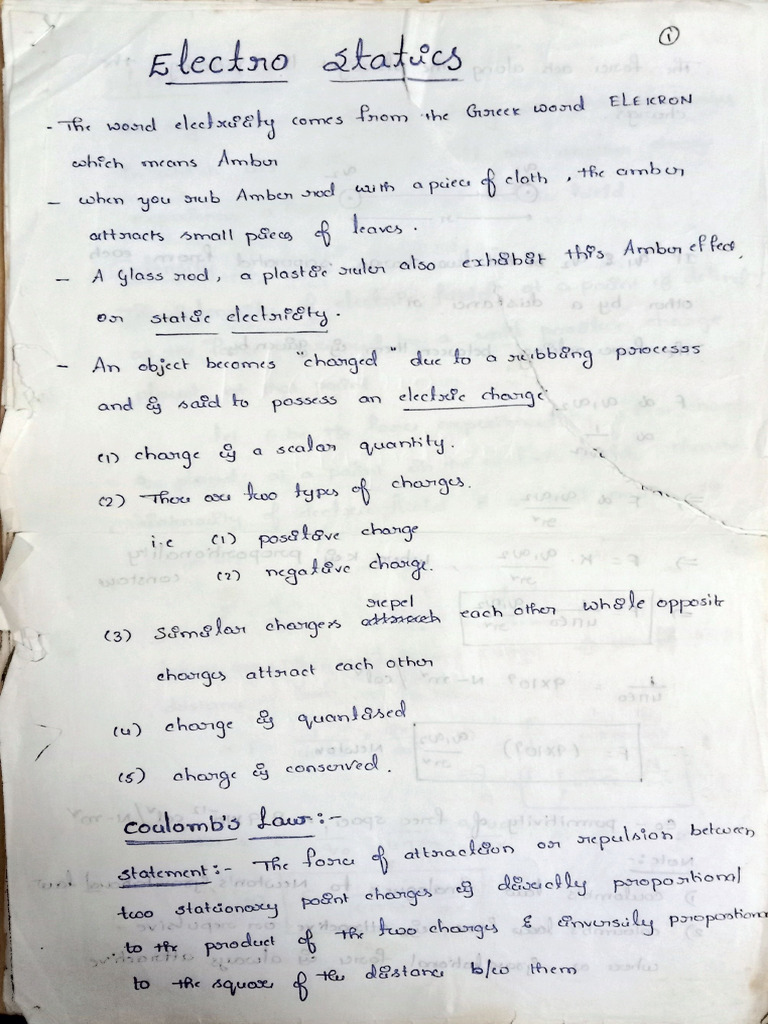 ①
Electro Statics
- The word electricity comes from the Greek word ELEKRON
which means Amber
- when you rub Amber rod with a piece of cloth, the amber
attracts small pieces of leaves.
- A Glass rod, a plastic ruler also exhibit this Amber effect,
or static electricity.
- An object becomes "charged" due to a rubbing processs
and is said to possess an electric charge
(1) charge is a scalar quantity.
(2) There are two types of charges.
i.e (1) positive charge
(2) negative charge.
repel
(3) Similar charges attract each other while opposite
charges attract each other
(4) charge is quantised
(5) charge is conserved.
Coulomb's Law:-
Statement:- The force of attraction or repulsion between
two stationary point charges is directly proportional
to the product of the two charges & inversily proportional
to the square of the distance b/w them